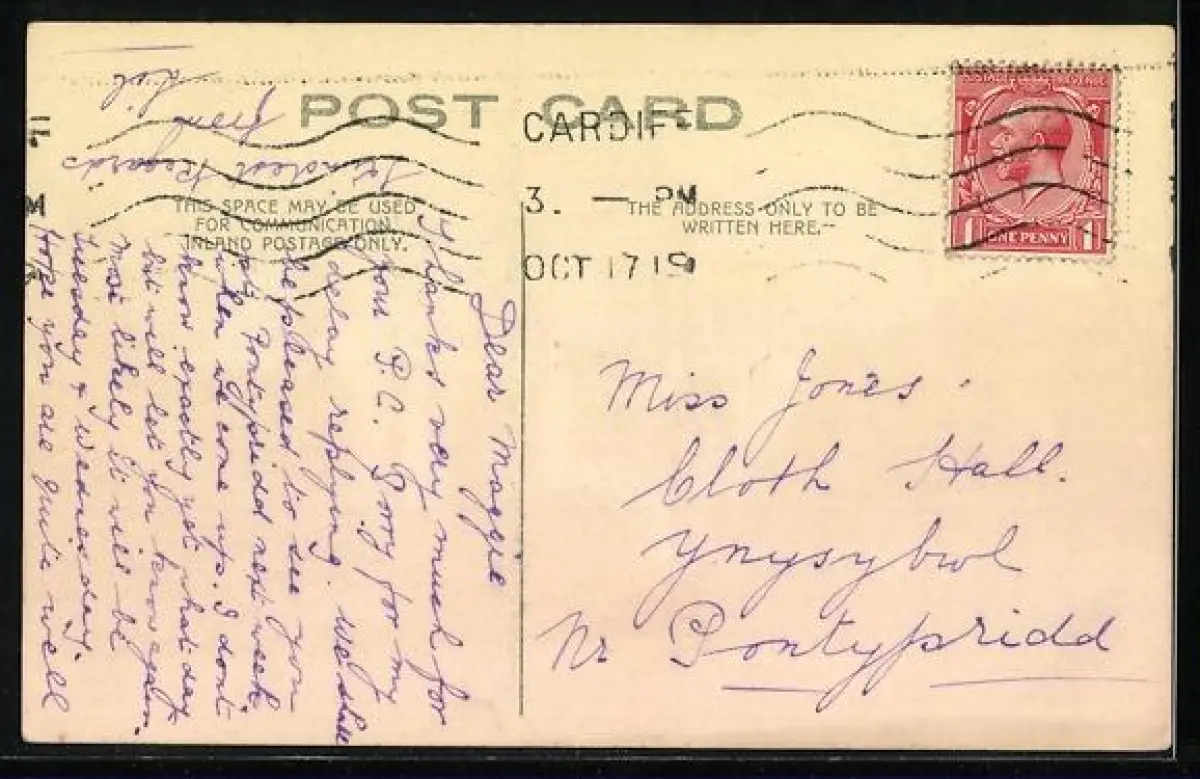 POST CARD
THIS SPACE MAY BE USED
FOR COMMUNICATION
INLAND POSTAGE ONLY.
THE ADDRESS ONLY TO BE
WRITTEN HERE.
CARDIFF
3. — PM
OCT 17 19
POSTAGE REVENUE
1 ONE PENNY 1
Dear Maggie
Thanks very much for
your P.C. Sorry for my
delay replying. We shall
be pleased to see you
at Pontypridd next week
when we come up. I dont
know exactly yet what day
but will let you know again.
Most likely it will be
Tuesday & Wednesday.
Hope you are quite well
Kindest Regards
from
Miss Jones.
Cloth Hall.
Ynysybwl
Nr Pontypridd